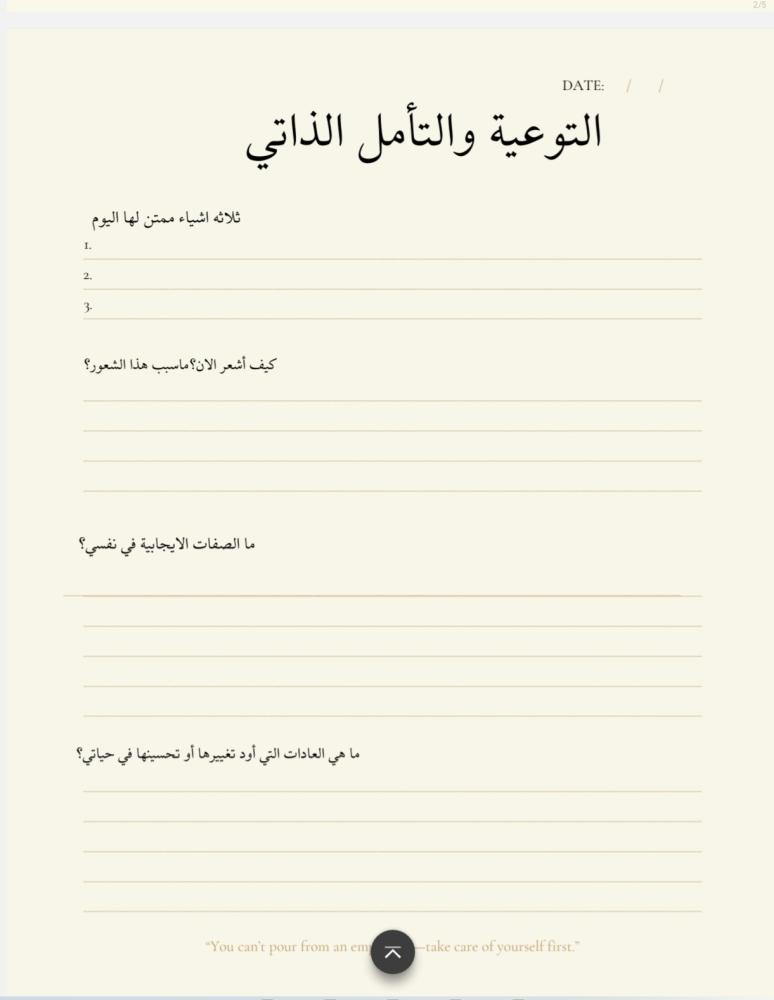 2/5
DATE: / /
التوعية والتأمل الذاتي
ثلاثه اشياء ممتن لها اليوم
1.
2.
3.
كيف أشعر الان؟ماسبب هذا الشعور؟
ما الصفات الايجابية في نفسي؟
ما هي العادات التي أود تغييرها أو تحسينها في حياتي؟
“You can’t pour from an —take care of yourself first.”